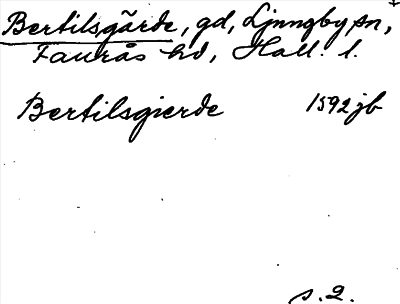 Bertilsgärde, gd, Ljungby sn,
Faurås hd, Hall. l.
Bertilsgierde 1592 jb
s. 2.